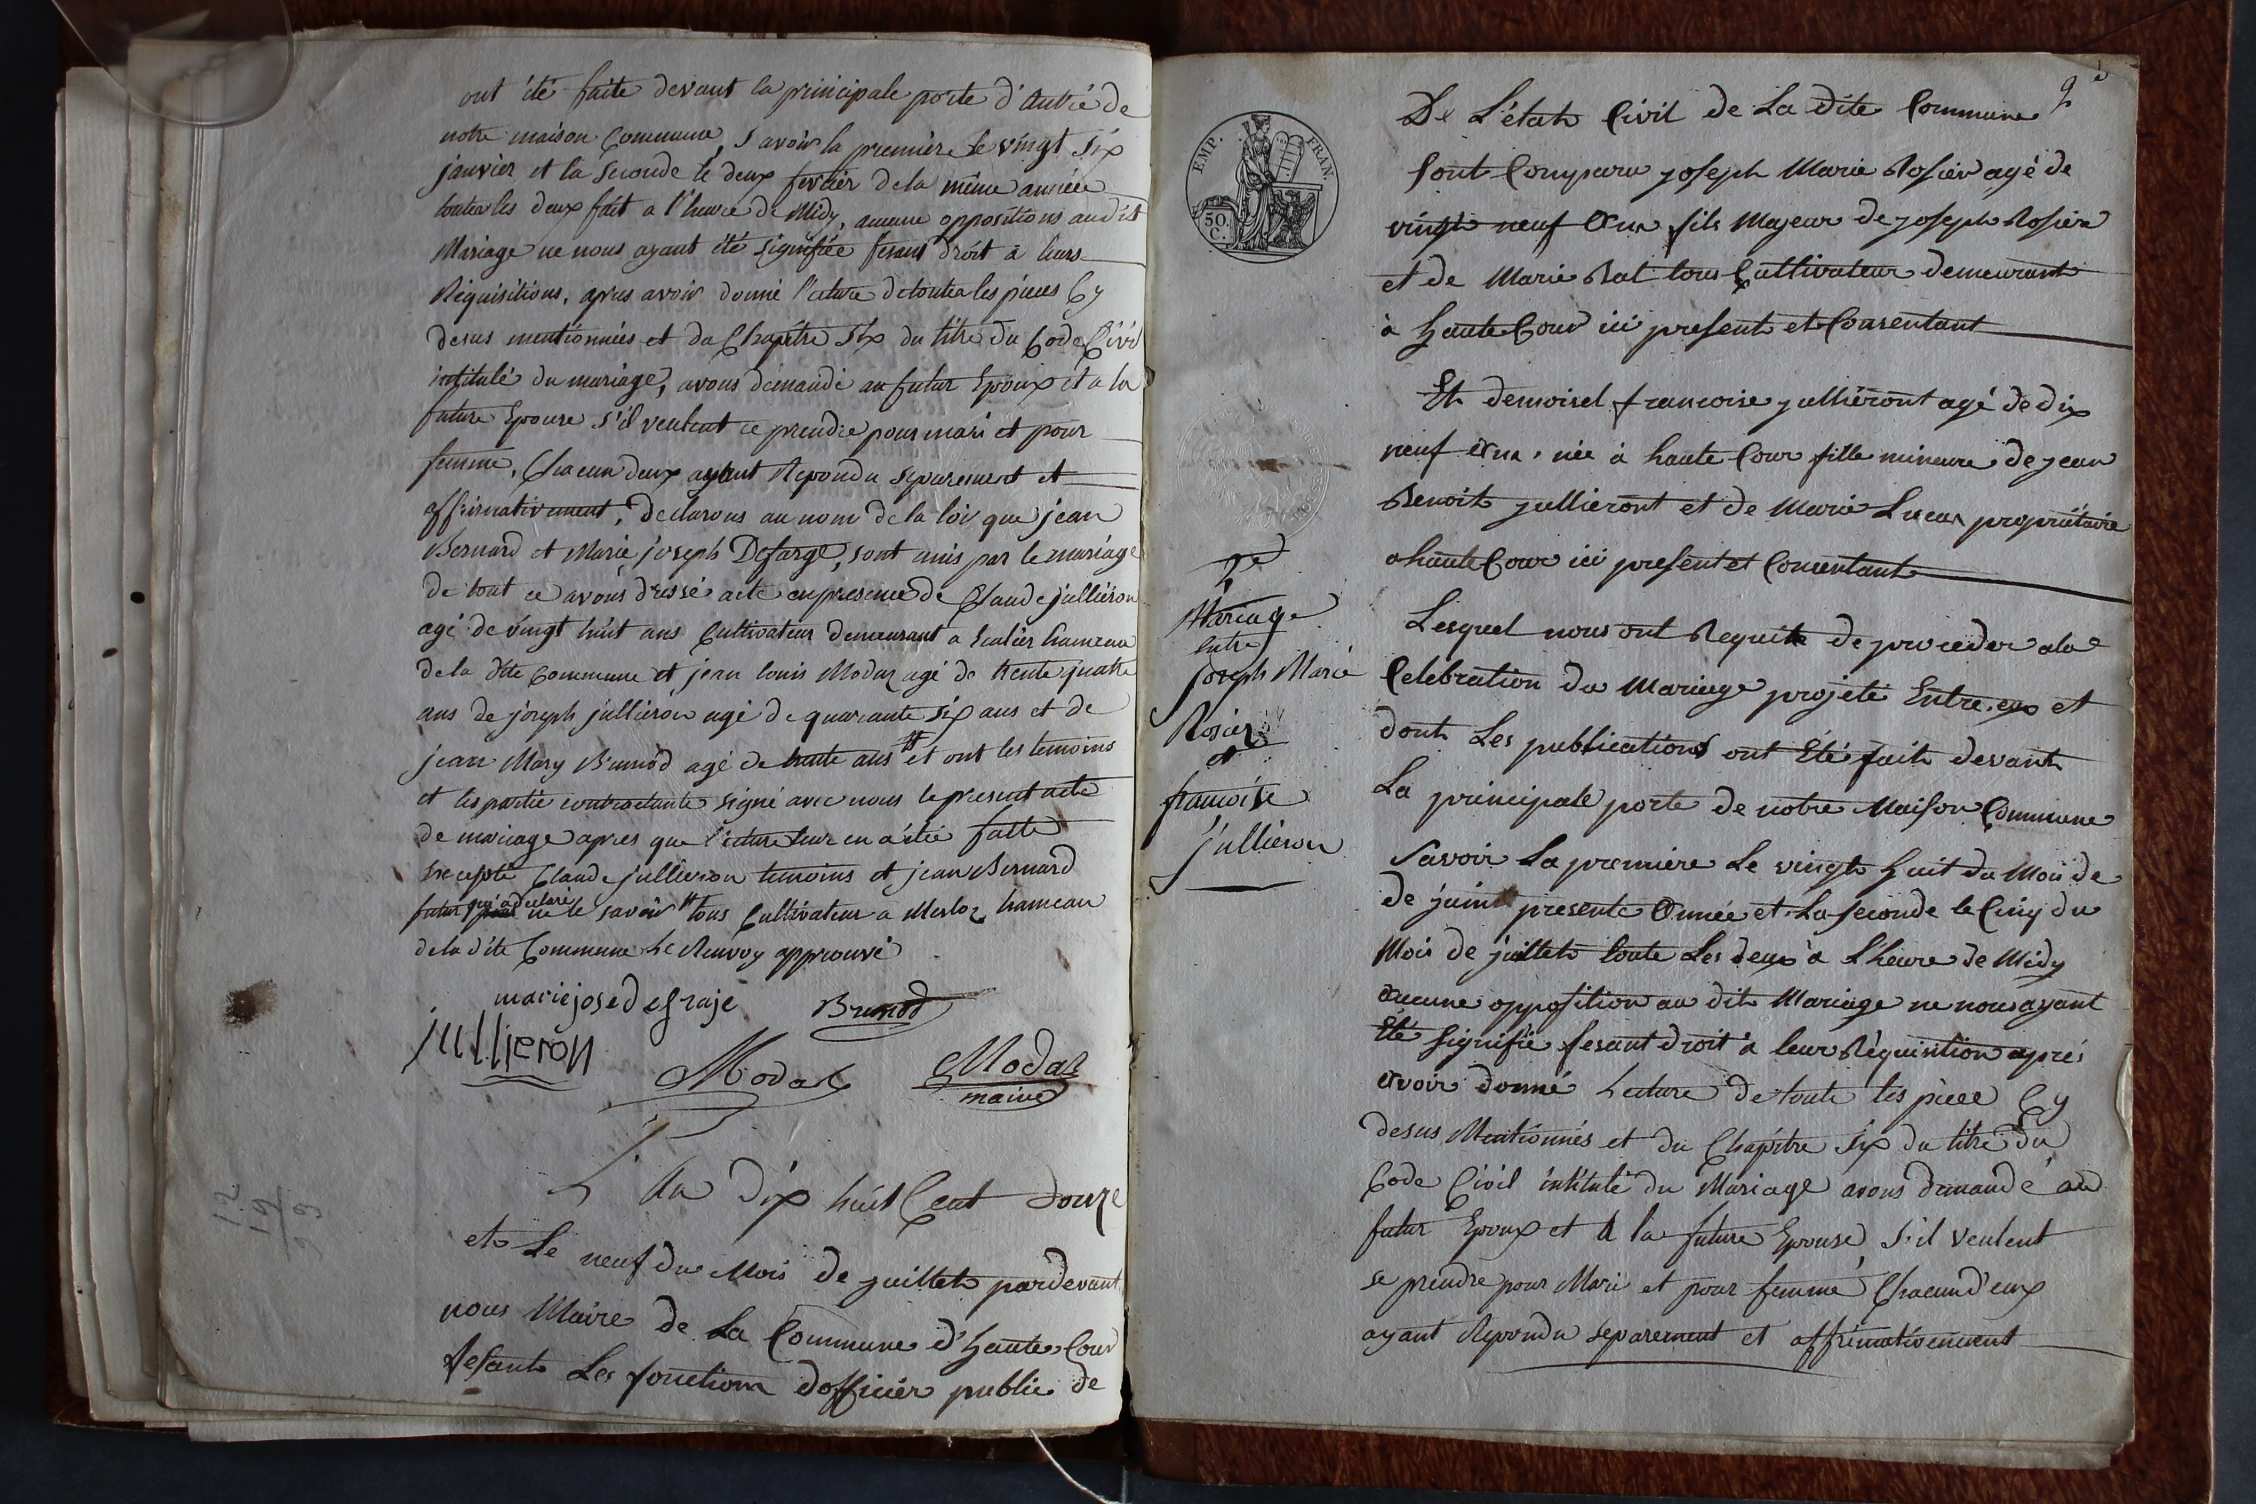 ont été faite devant la principale porte d'Autrée de
notre maison Commune, savoir la premier le vingt six
janvier et la seconde le deux fevrier dela même année
toutes les deux fait a l'heure de Midy, aucune oppositions audit
Mariage ne nous ayant été signifiée fesant droit à leurs
Réquisitions, apres avoir donné l'ecture detoutea les pieces Cy
desus mentionnées et du Chapitre Six du titre du Code Civil
intitulé du mariage, avons demandé au futur Epoux et a la
future Epouse s'il veulent ce prendre pour mari et pour
femme, Chacun deux ayant Repondu séparement et
affirmativement, Declarons au nom de la loix que jean
Bernard et Marie joseph Defarge, sont unis par le mariage
de tout ce avons dressé acte en presence de Claude jullieron
agé de vingt huit ans Cultivateur demeurant a hameau
de la dite Commune et jean louis Modaz agé de trente quatre
ans de joseph jullieron agé de quarante six ans et de
jean Mary Brunod agé de trente ans # et ont les temoins
et les partie contractante signé avec nous le present acte
de mariage apres que l'ecture leur en a étée faitte
excepté Claude jullieron temoins et jean Bernard
futur qui a declaré ne le savoir # tous Cultivateur a Merloz hameau
de la d'ite Commune Le Renvoy approuvé
marie jose defraje Brunod
jullieron
Modaz Modaz
maire
L'an dix huit Cent douze
et Le neuf du Mois de juillet pardevant
nous Maire de La Commune d'haute Cour
fesant Les fonctions dofficier public de
2
EMP. FRAN.
50. C.
2e
Mariage
entre
joseph Marie
Rosier
et
francoise
jullieron
De L'état Civil de La dite Commune
sont Comparu joseph Marie Rosier agé de
vingt neuf ans fils Majeur de joseph Rosier
et de Marie Rat tous Cultivateur demeurant
à haute Cour ici present et Consentant
Et demoisel francoise jullieront agé de dix
neuf ans, née à haute Cour fille mineure de jean
Benoit jullieront et de Marie Lucas propriétaire
a haute Cour ici present et Consentant
Lesquel nous ont Requit de proceder a la
Celebration du Mariage projeté Entre eux et
dont Les publications ont Eté fait devant
La principale porte de notre Maison Commune
Savoir La premiere Le vingt huit du Mois de
de juin presente Année et La seconde le Cinq du
Mois de juillet toute Les deux à L'heure de Midy
aucune opposition au dit Mariage ne nous ayant
Eté signifié fesant droit à leur Réquisition aprés
avoir donné Lecture de toute les piece Cy
desus Mentionnés et du Chapitre Six du titre du
Code Civil intitulé du Mariage avons demandé au
futur Epoux et A la future Epouse, s'il veulent
se prendre pour Mari et pour femme Chacun d'eux
ayant Repondu separement et affirmativement